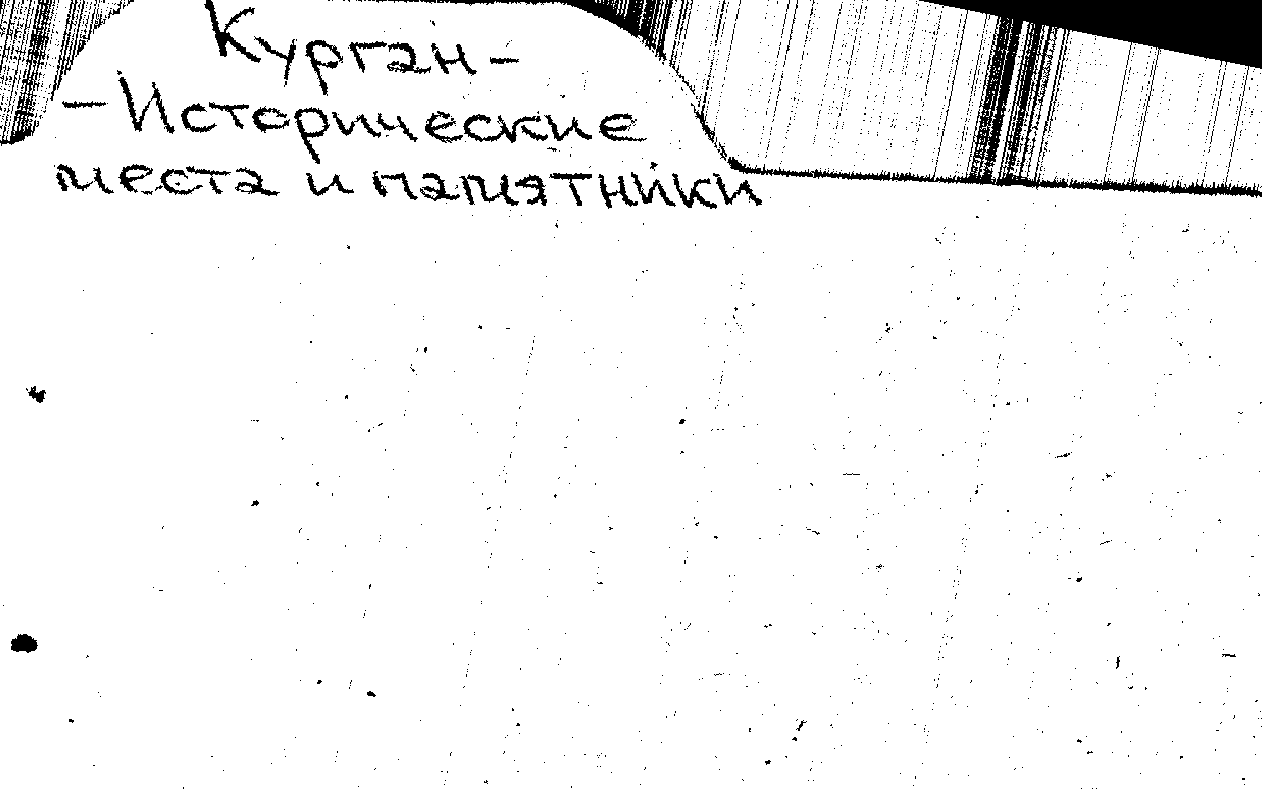 Курган-
-Исторические
места и памятники